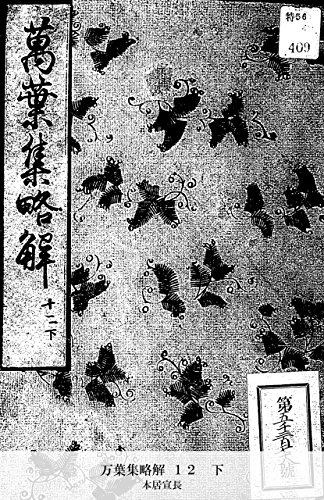 萬葉集略解
十二下
特56
409
第五十三百八號
万葉集略解 12 下
本居宣長